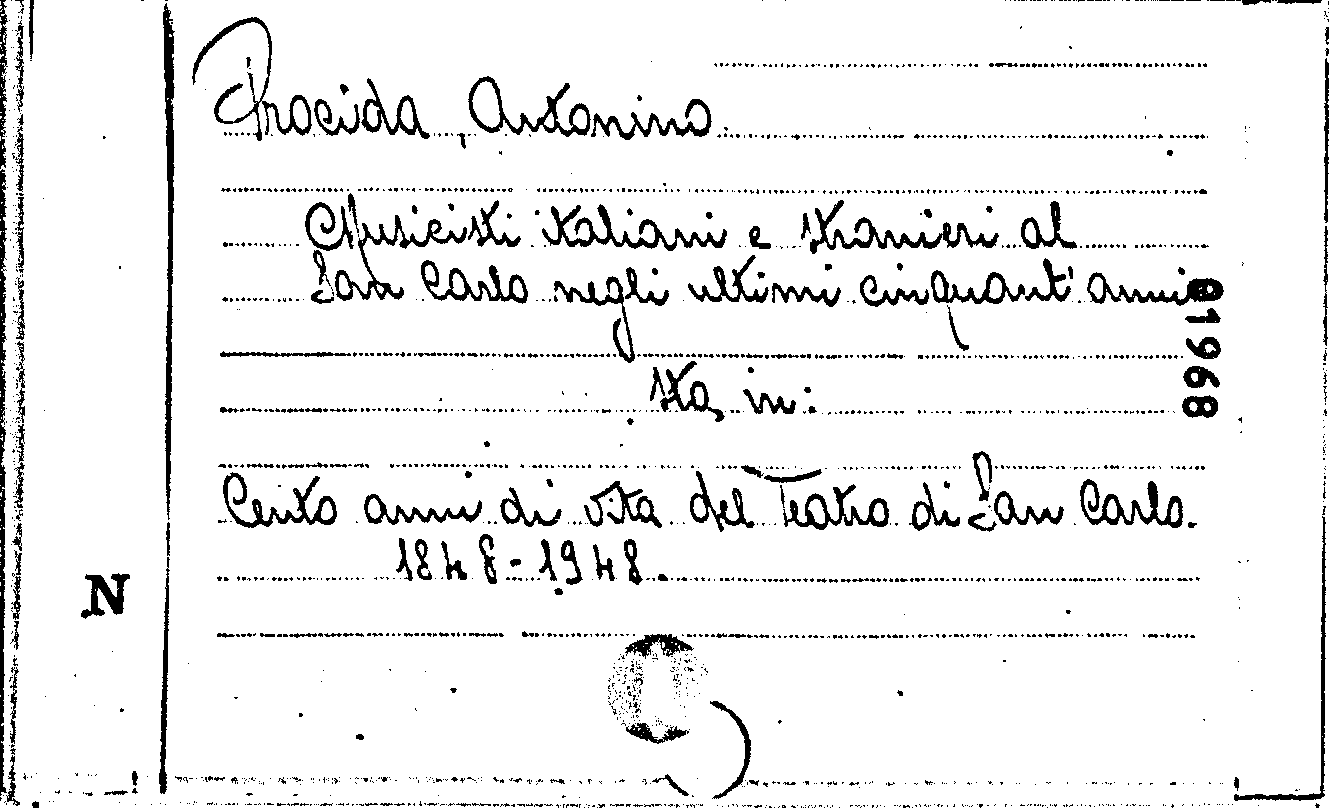 Procida, Antonino
Musicisti italiani e stranieri al
San Carlo negli ultimi cinquant'anni
01968
sta in:
Cento anni di vita del Teatro di San Carlo.
1848-1948.
N